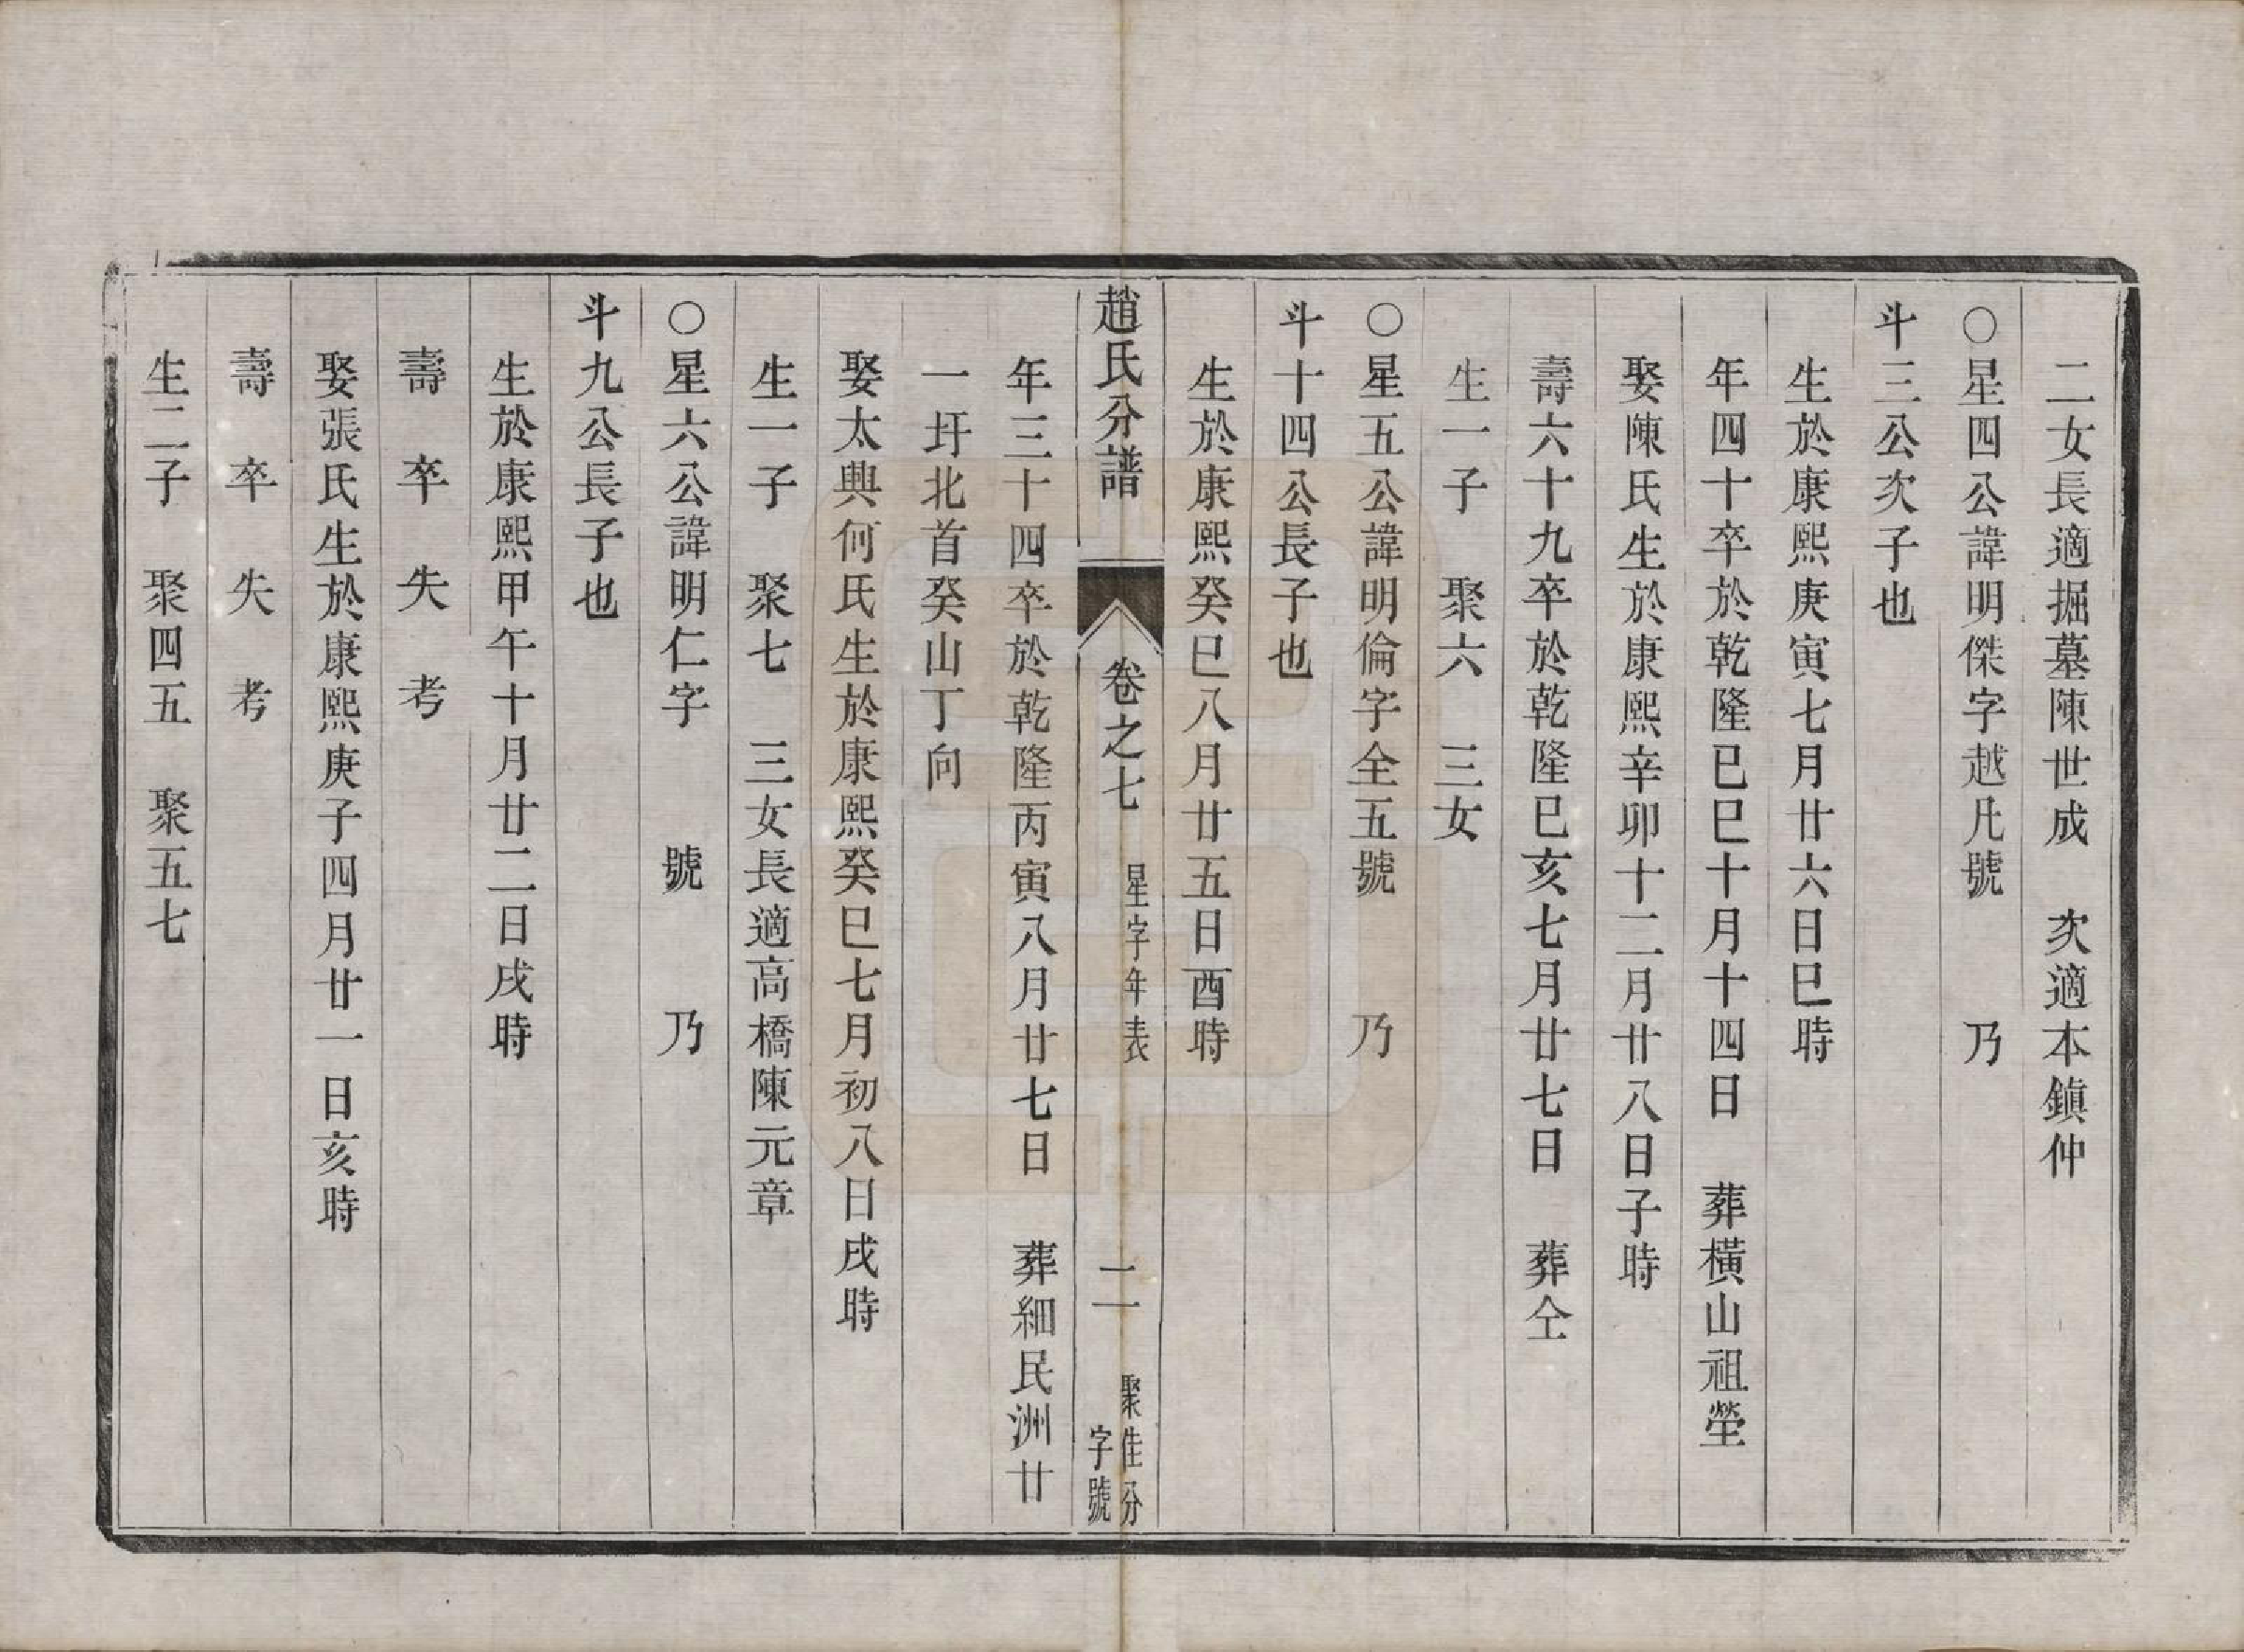 二女長適掘墓陳世成　次適本鎮仲
○星四公諱明傑字越凡號　　乃
斗三公次子也
生於康熙庚寅七月廿六日巳時
年四十卒於乾隆己巳十月十四日　葬橫山祖塋
娶陳氏生於康熙辛卯十二月廿八日子時
壽六十九卒於乾隆己亥七月廿七日　葬仝
生一子　聚六　三女
○星五公諱明倫字全五號　　乃
斗十四公長子也
生於康熙癸巳八月廿五日酉時
趙氏分譜　卷之七　星字年表　二　聚佳分字號
年三十四卒於乾隆丙寅八月廿七日　葬細民洲廿
一圩北首癸山丁向
娶太興何氏生於康熙癸巳七月初八日戌時
生一子　聚七　三女長適高橋陳元章
○星六公諱明仁字　　號　　乃
斗九公長子也
生於康熙甲午十月廿二日戌時
壽　卒　失　考
娶張氏生於康熙庚子四月廿一日亥時
壽　卒　失　考
生二子　聚四五　聚五七